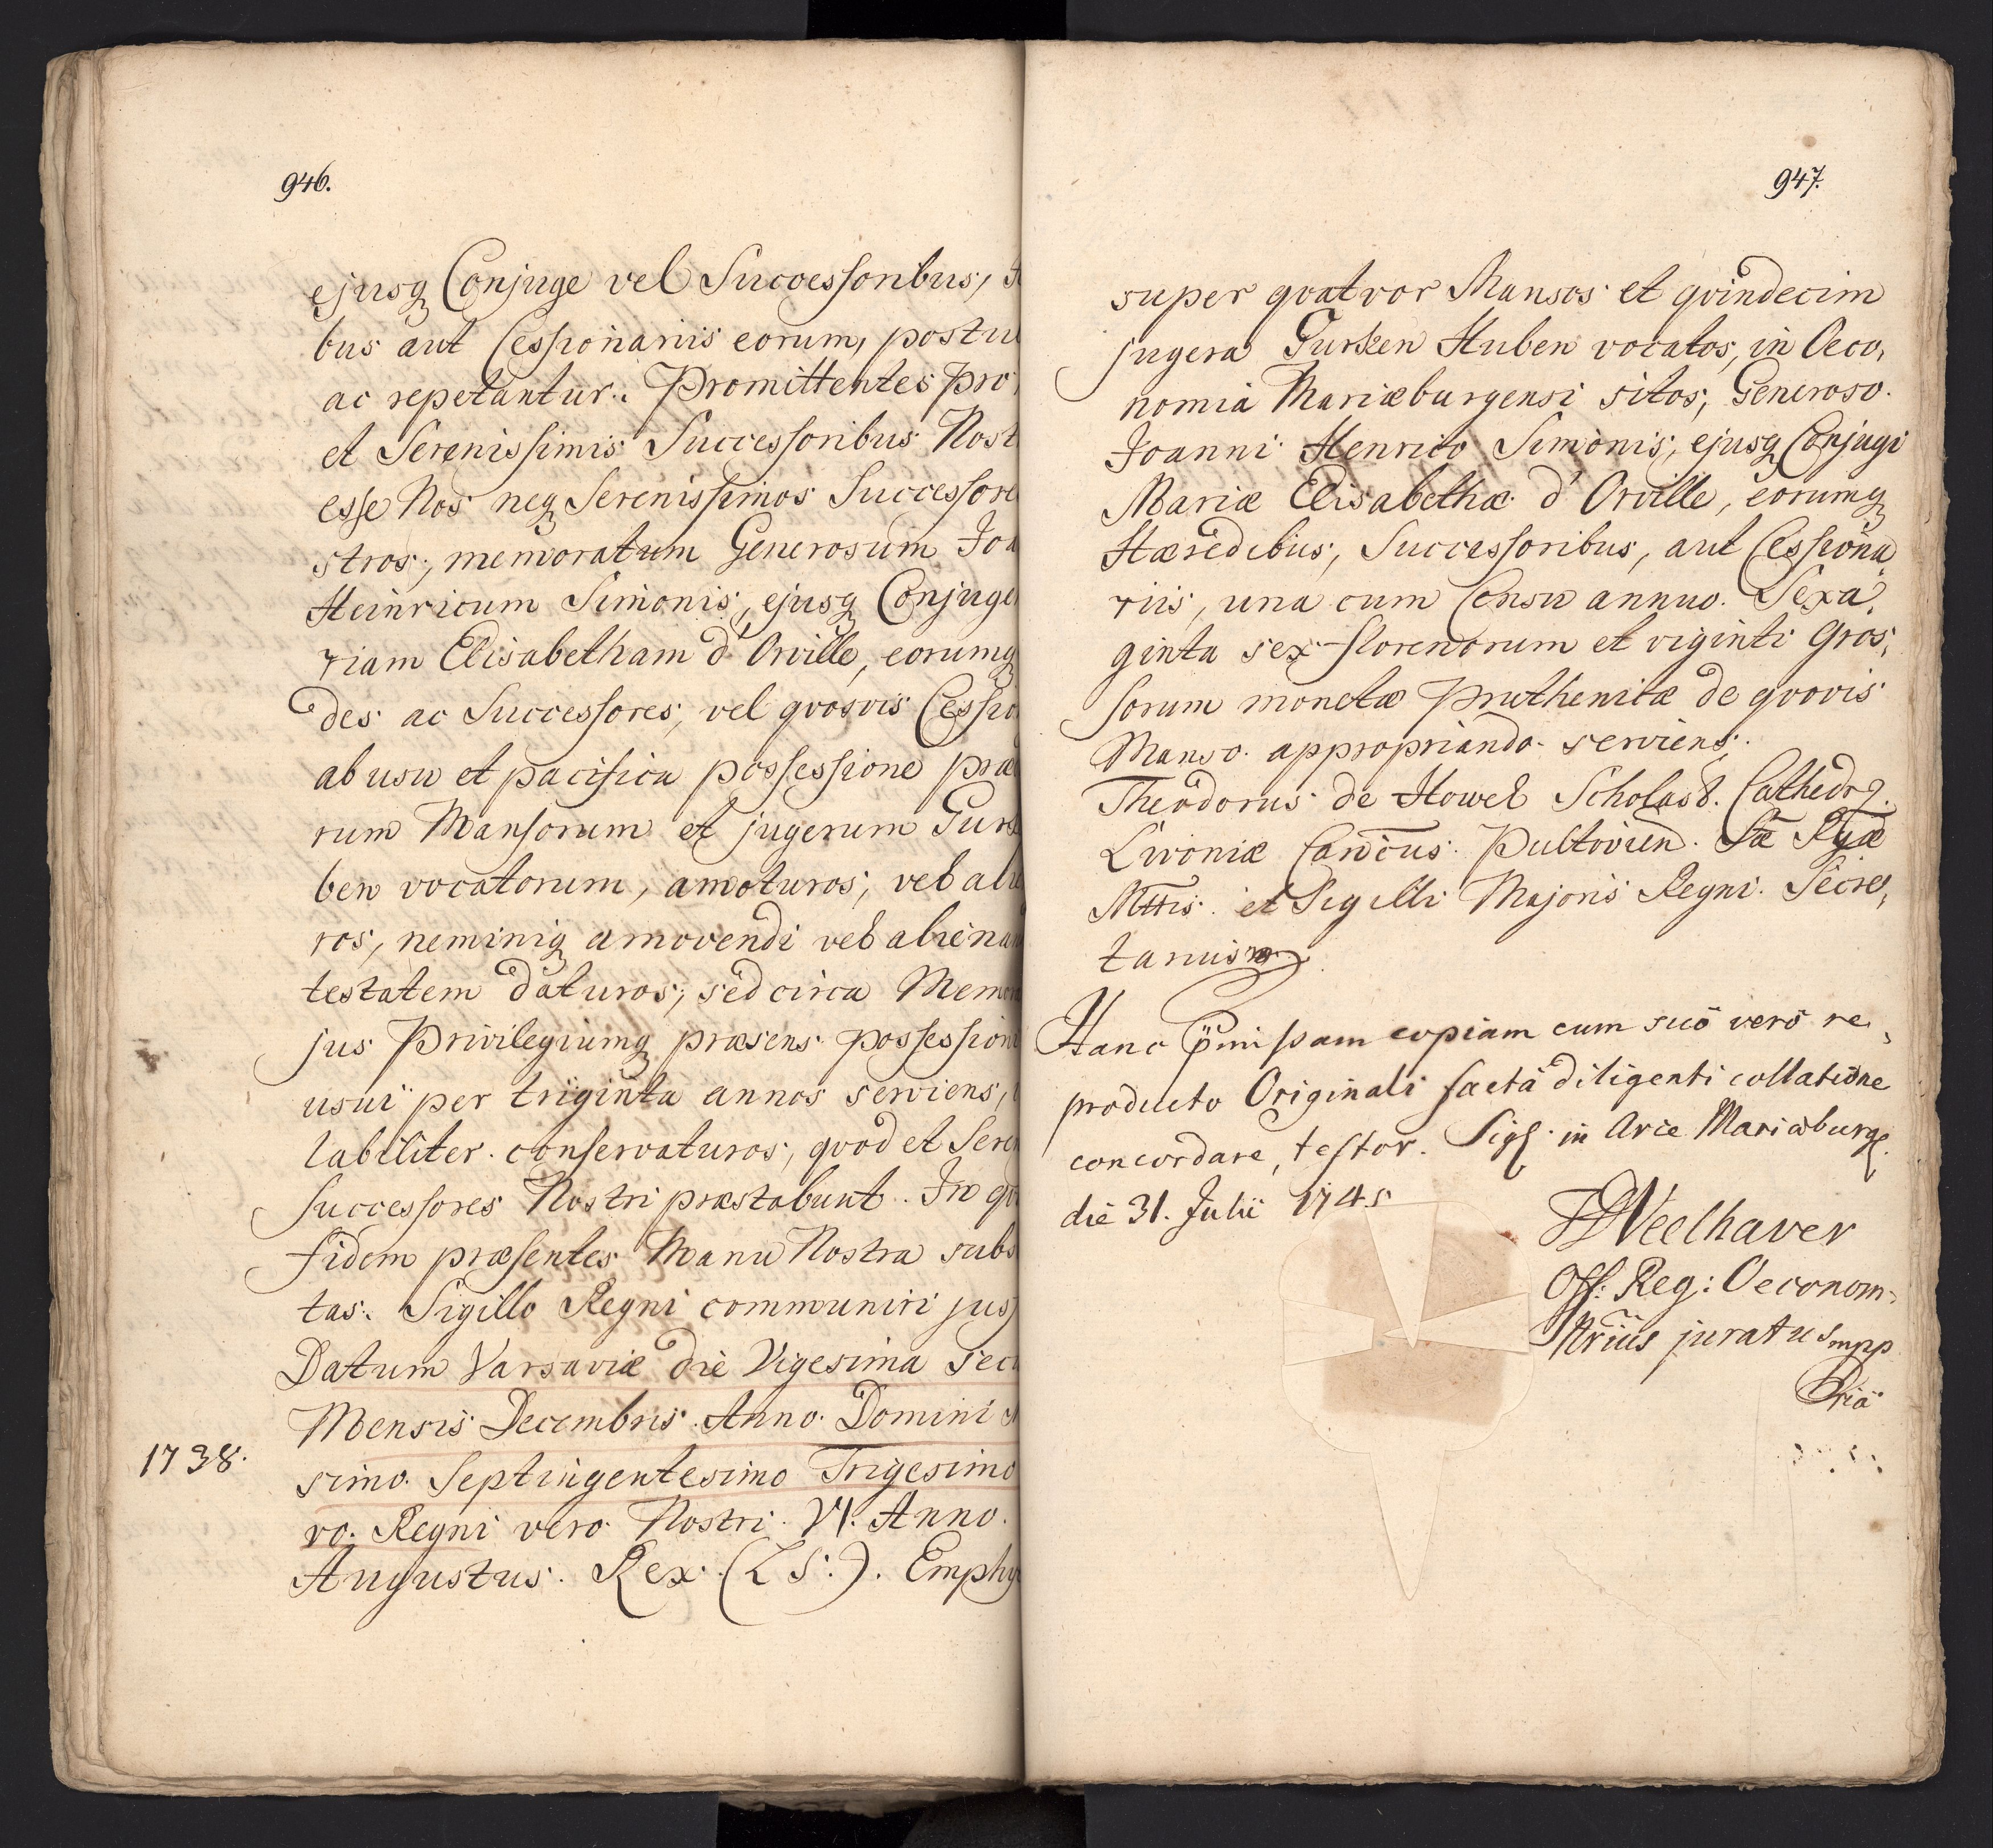 946.
ejusq Conjuge vel Successoribus,
bus aut Cessionariis eorum, postu
ac repetantur. Promittentes pro
et Serenissimis Successoribus Nost
esse Nos neq Serenissimos Successore
stros, memoratum Generosum Joa
Heinricum Simonis, ejusq Conjuge
riam Elisabetham d'Orville, eorumq
des ac Successores, vel qvosvis Cessio
ab usu et pacifica possessione præ
rum Mansorum et jugerum Gurs
ben vocatorum, amoturos, vel alie
ros, neminiq amovendi vel alienan
testatem daturos, sed circa Memora
jus Privilegiumq præsens possession
usui per triginta annos serviens,
labiliter conservaturos, qvod et Seren
Successores Nostri præstabunt. In qv
fidem præsentes Manu Nostra subs
tas. Sigillo Regni communiri jus
Datum Varsaviæ die Vigesima sec
Mensis Decembris Anno Domini M
1738.
simo Septingentesimo Trigesimo
vo. Regni vero Nostri VI. Anno.
Augustus Rex. (L S:). Emphy
947.
super qvatvor Mansos et qvindecim
jugera Gursken Huben vocatos, in Oeco,
nomia Mariæburgensi sitos, Generoso
Joanni Henrico Simonis, ejusq Conjugi
Mariæ Elisabethæ d'Orville, eorumq
Hæredibus, Successoribus, aut Cessiona,
riis, una cum Censu annuo Sexa,
ginta sex florenorum et viginti Gros,
sorum monetæ Pruthenicæ de qvovis
Manso appropriando serviens.
Theodorus de Howel Scholast. Cathedr.
Livoniæ Canōcus Pultovien. Sæ Rgæ
Mttis et Sigilli Majoris Regni Secre,
tarius
Hanc pmissam copiam cum suō verō re,
producto Originali factâ diligenti collatiōne
concordare, testor. Sigl. in Arce Mariæburg.
die 31. Julii 1745
Neelhaver
Off: Reg: Oeconom.
Nrius juratus mpp
Pria